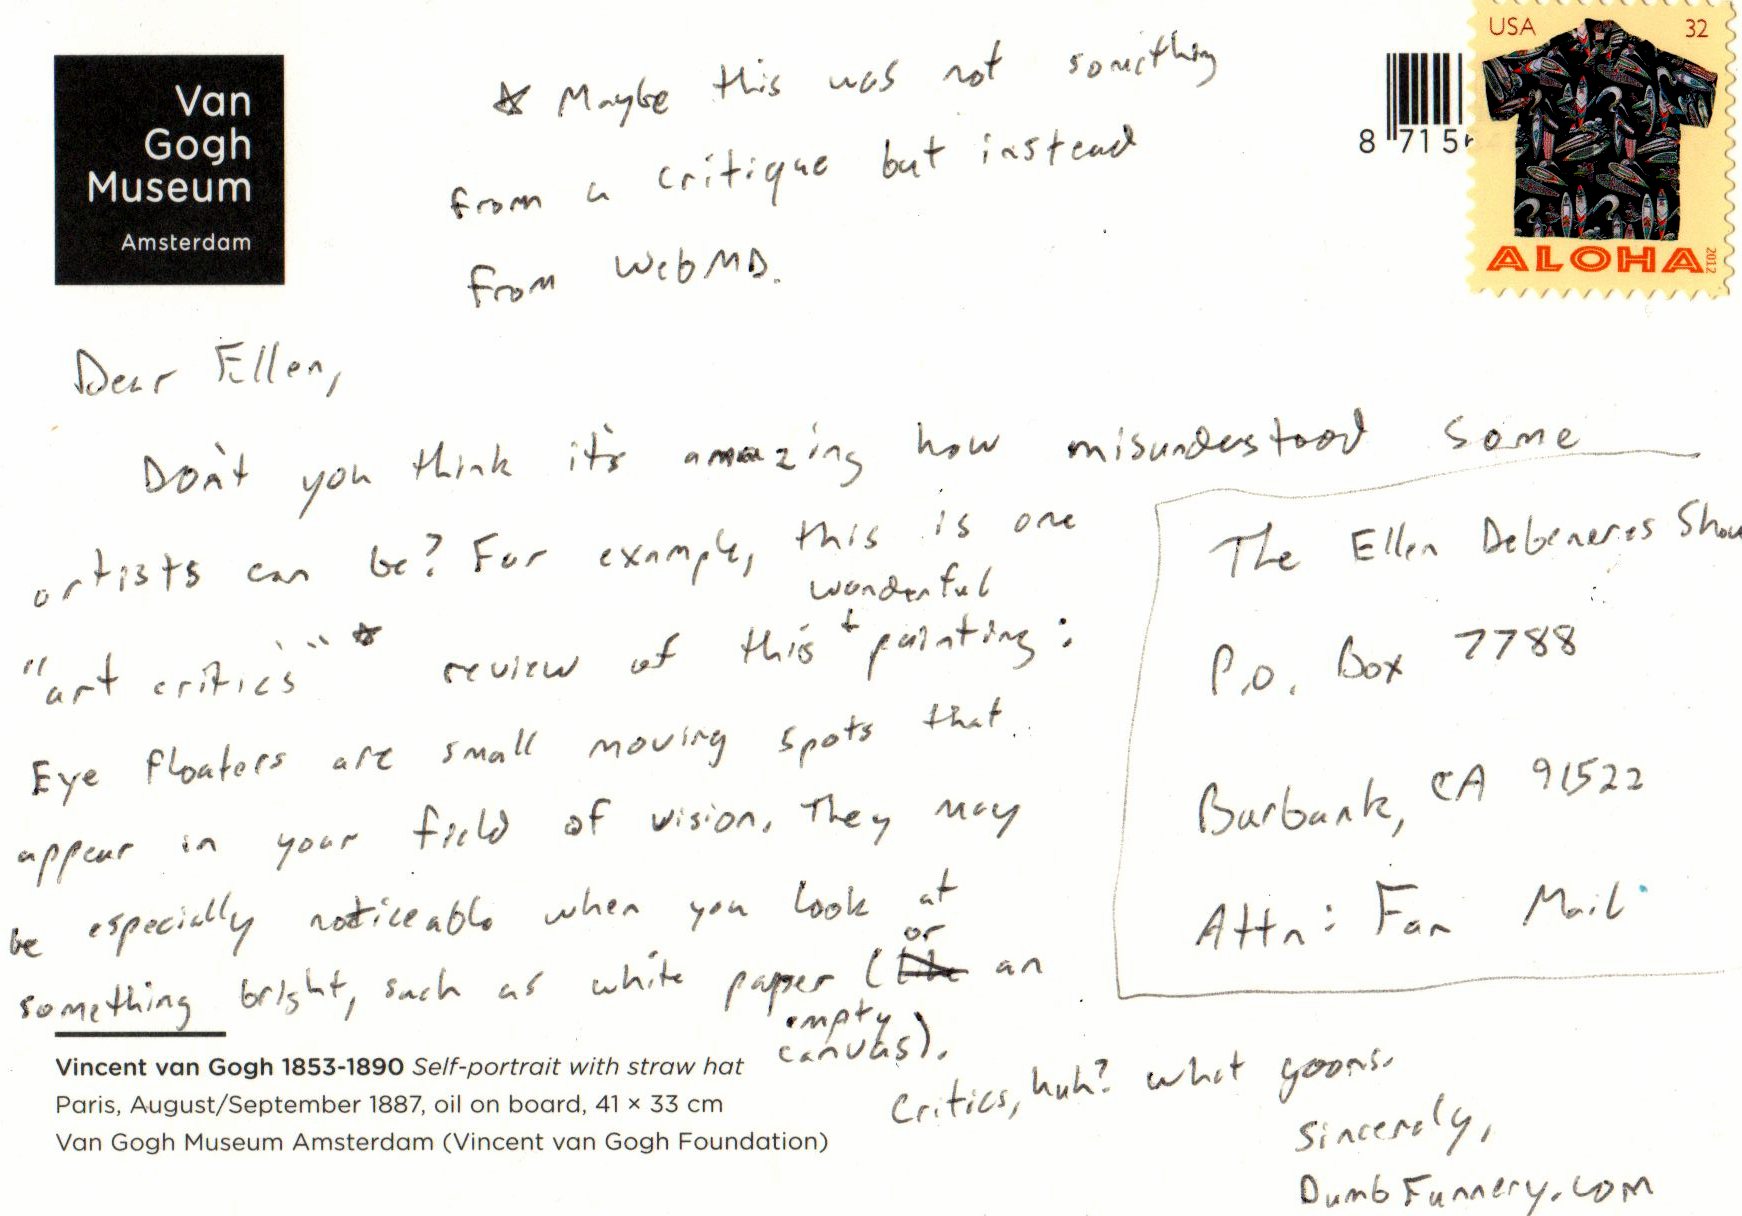 Van
Gogh
Museum
Amsterdam
* Maybe this was not something
from a critique but instead
from WebMD.
8 715
USA 32
ALOHA
2012
Dear Ellen,
Don't you think it's amazing how misunderstood some
artists can be? For example, this is one
"art critic's"* review of this wonderful painting:
Eye floaters are small moving spots that
appear in your field of vision. They may
be especially noticeable when you look at
something bright, such as white paper (or an
empty
canvas).
Critics, huh? What goons.
Sincerely,
DumbFunnery.com
The Ellen Degeneres Show
P.O. Box 7788
Burbank, CA 91522
Attn: Fan Mail
Vincent van Gogh 1853-1890 Self-portrait with straw hat
Paris, August/September 1887, oil on board, 41 × 33 cm
Van Gogh Museum Amsterdam (Vincent van Gogh Foundation)